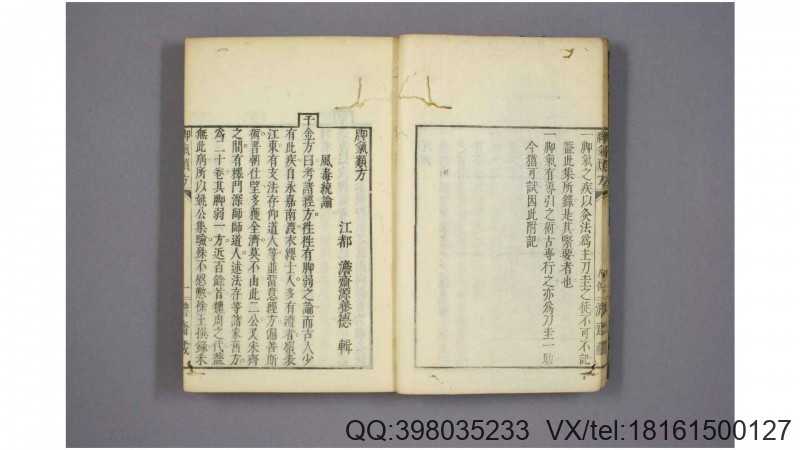 一脚氣之疾以灸法爲主刀圭之徒不可不記
蓋此集所錄是其緊要者也
一脚氣有導引之術古專行之亦爲刀圭一助
今猶可試因此附記
脚氣類方
江都 源養德 輯
風毒統論
千金方曰考諸經方往往有脚弱之論而古人少
有此疾自永嘉南渡衣纓士人多有遭者嶺表
江東有支法存仰道人等並留意經方偏善斯
術晉朝仕望多獲全濟莫不由此二公又宋齊
之間有釋門深師師道人述法存等諸家舊方
爲二十卷其脚弱一方近百餘首魏周之代蓋
無此病所以姚公集驗殊不慇懃徐王撰錄未
脚氣類方
QQ:398035233 VX/tel:18161500127